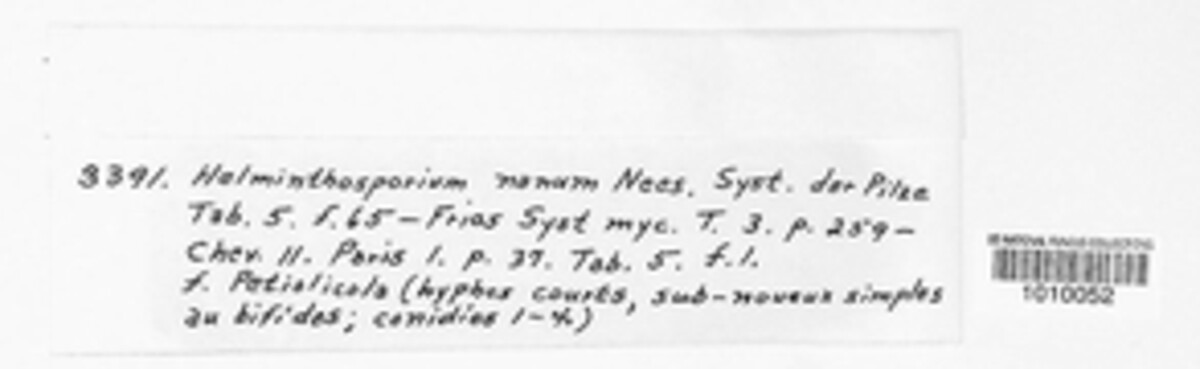 3391. Helminthosporium nanum Nees. Syst. der Pilze
Tab. 5. f. 65 — Fries Syst myc. T. 3. p. 259 —
Chev. Il. Paris 1. p. 37. Tab. 5. f. 1.
f. Petiolicola (hyphes courts, sub-noueux simples
au bifides; conidies 1-4)
US NATIONAL FUNGUS COLLECTIONS
1010052